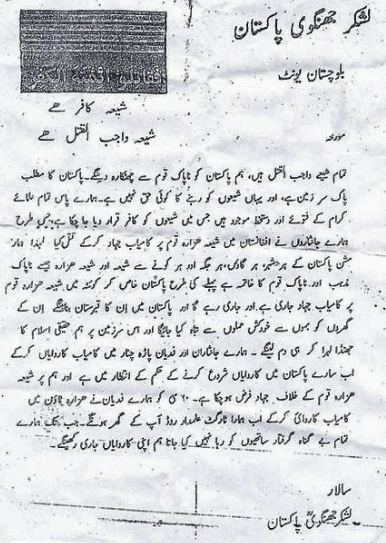 لشکر جھنگوی پاکستان
بلوچستان یونٹ
شیعہ کافر ھے
شیعہ واجب القتل ھے
مورخہ
تمام شیعے واجب القتل ہیں، ہم پاکستان کو ناپاک قوم سے چھٹکارہ دینگے۔ پاکستان کا مطلب
پاک سرزمین ہے، اور یہاں شیعوں کو رہنے کا کوئی حق نہیں ہے۔ ہمارے پاس تمام علمائے
کرام کے فتوے اور دستخط موجود ہیں جس میں شیعوں کو کافر قرار دیا جا چکا ہے، جس طرح
ہمارے جانثاروں نے افغانستان میں شیعہ ہزارہ قوم پر کامیاب جہاد کرکے قتل کیا لہذا ہمارا
مشن پاکستان کے ہر شہر، ہر گاؤں، ہر جگہ اور ہر کونے سے شیعہ اور شیعہ ہزارہ جیسے ناپاک
مذہب اور ناپاک قوم کا خاتمہ ہے پہلے کی طرح پاکستان خاص کر کوئٹہ میں شیعہ ہزارہ قوم
پر کامیاب جہاد جاری ہے۔ اور جاری رہے گا اور پاکستان میں ان کا قبرستان بنائینگے ان کے
گھروں کو بموں سے خودکش حملوں سے تباہ کیا جائیگا اور اس سرزمین پر ہم حقیقی اسلام کا
جھنڈا لہرا کر ہی دم لینگے۔ ہمارے جانثاران اور فدیان پاڑہ چنار میں کامیاب کاروایاں کرکے
اب سارے پاکستان میں کاروایاں شروع کرنے کے حکم کے انتظار میں ہے اور ہم پر شیعہ
ہزارہ قوم کے خلاف جہاد فرض ہوچکا ہے۔ مئی کو ہمارے فدیان نے ہزارہ ٹاؤن میں
کامیاب کاروائی کرکے اب ہمارا ٹارگٹ علمدار روڈ آپ کے گھر ہونگے۔ جب تک ہمارے
تمام بے گناہ گرفتار ساتھیوں کو رہا نہیں کیا جاتا ہم اپنی کاروایاں جاری رکھینگے۔
سالار
لشکر جھنگوی پاکستان